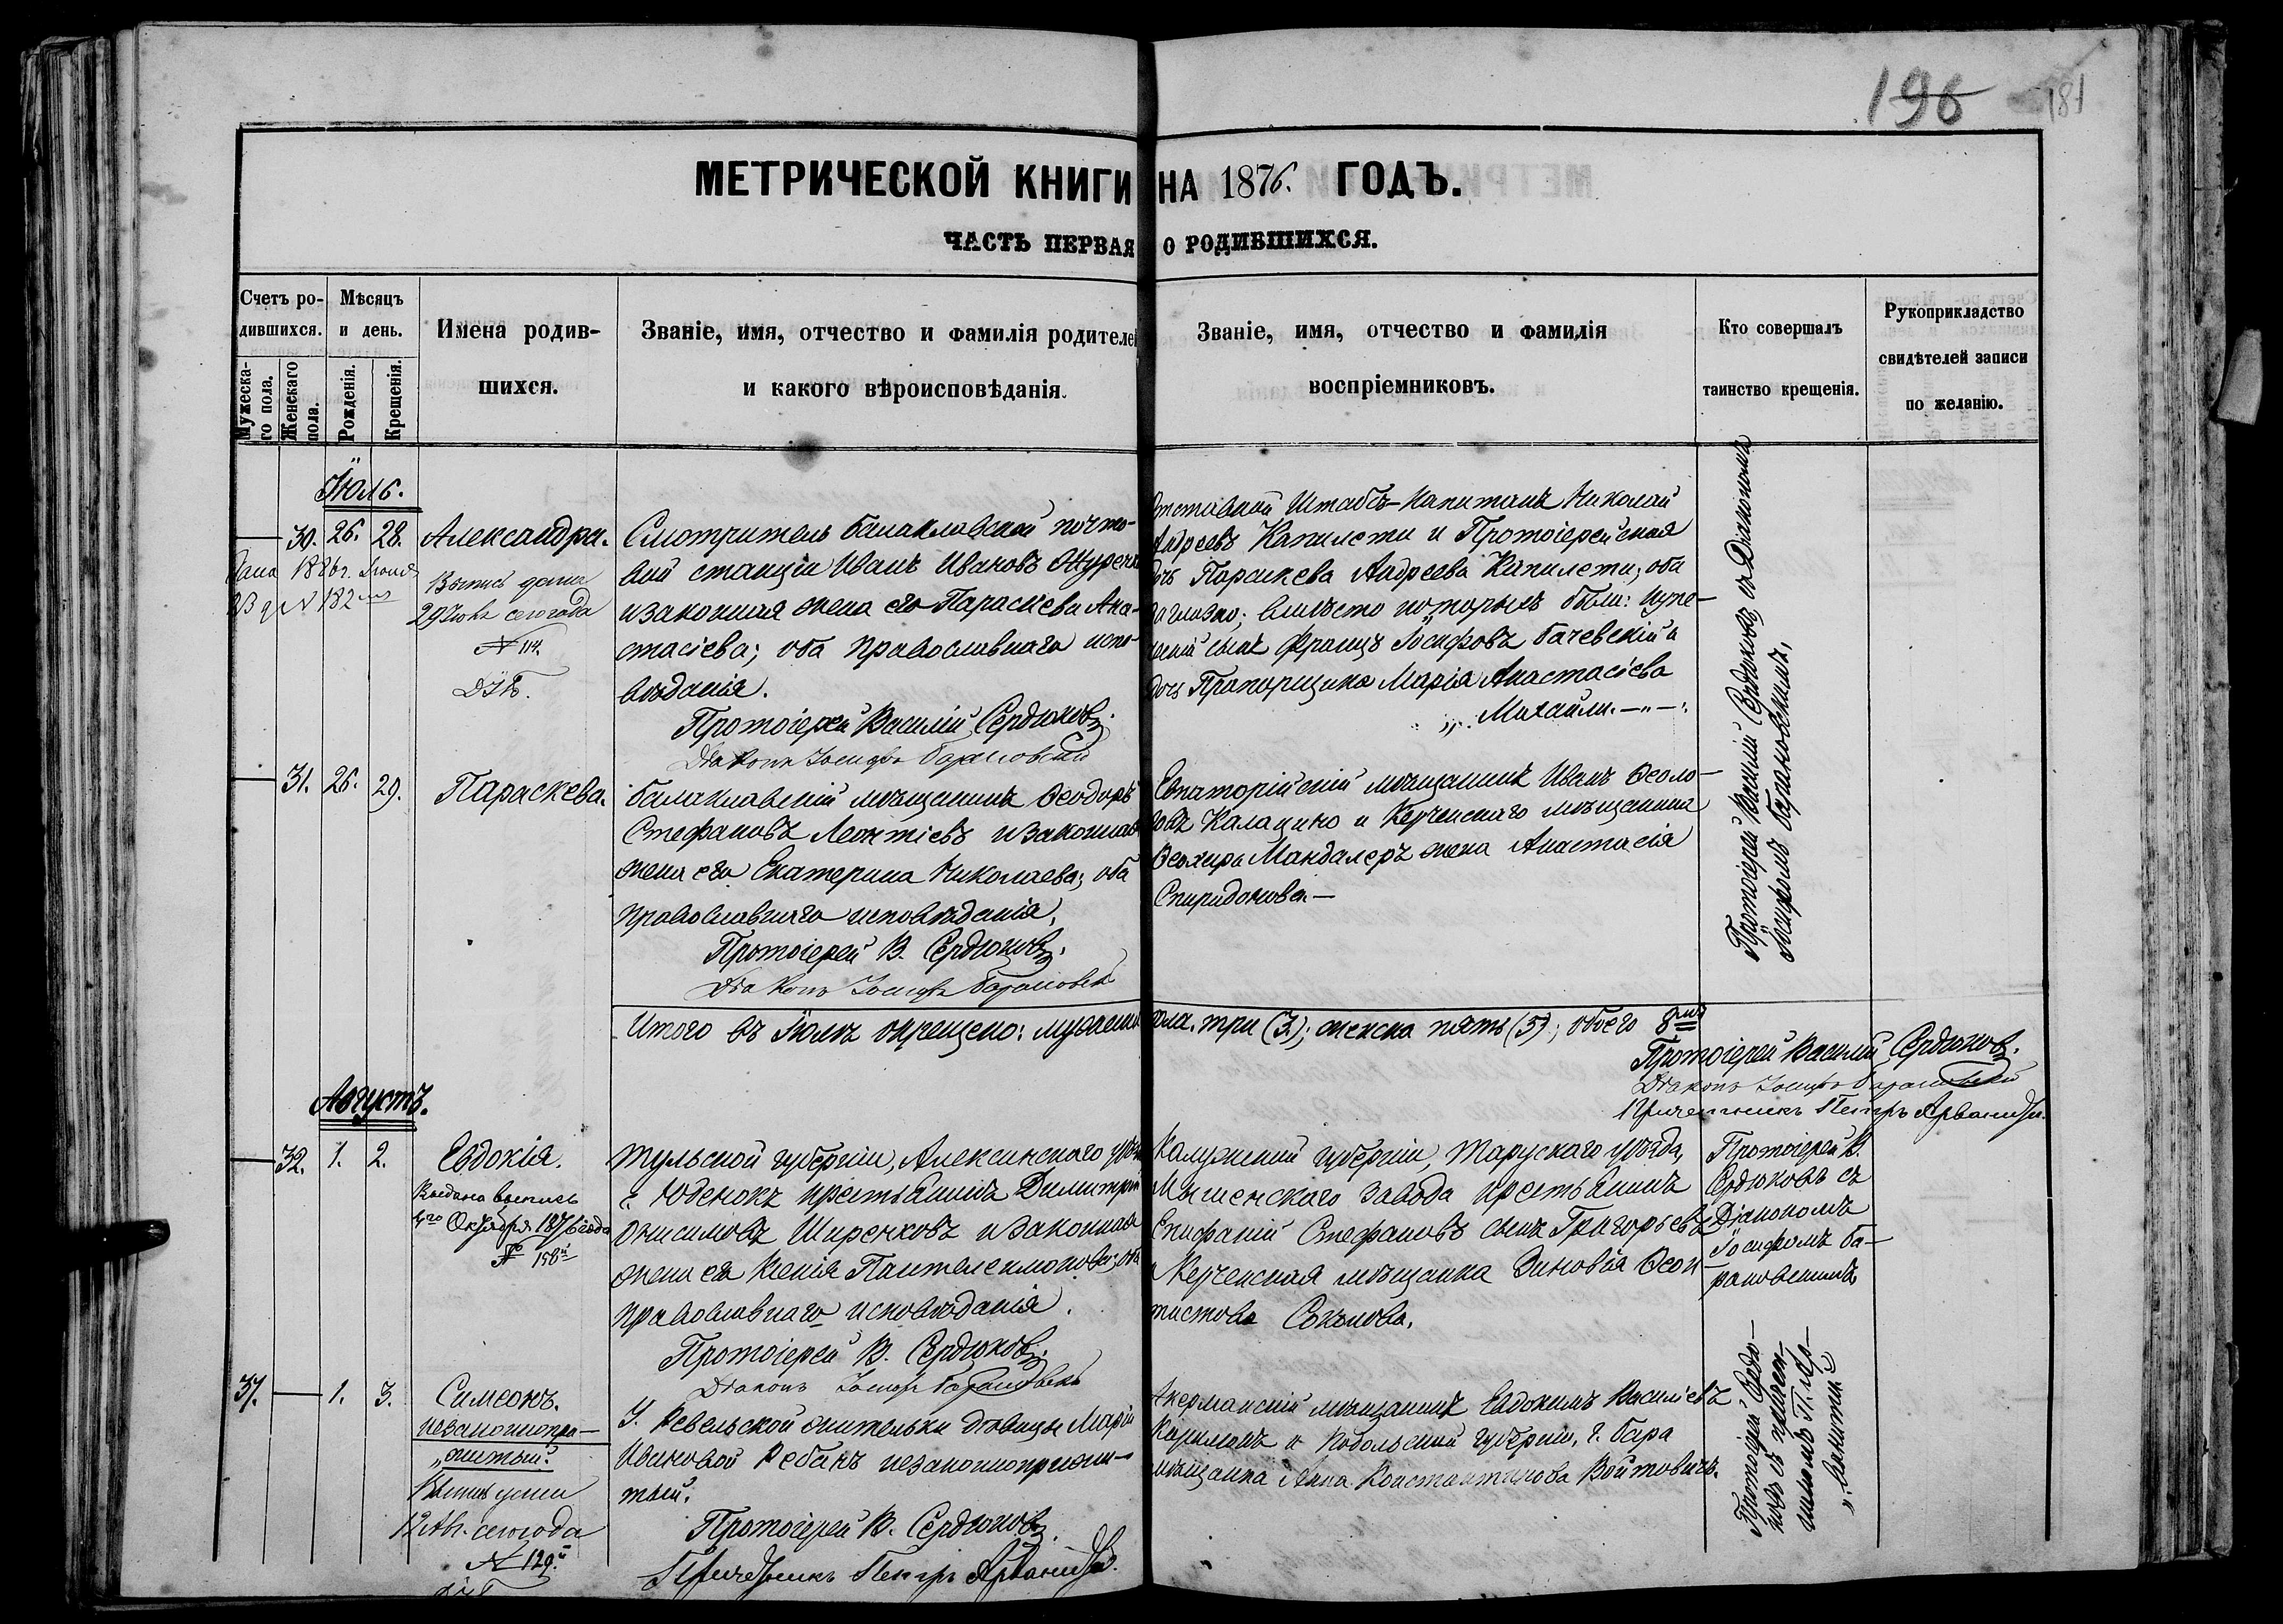 196 181
МЕТРИЧЕСКОЙ КНИГИ НА 1876. ГОДЪ.
ЧАСТЬ ПЕРВАЯ О РОДИВШИХСЯ.
Счетъ ро-
дившихся.
Мужеска-
го пола.
Женскаго
пола.
Мѣсяцъ
и день.
Рожденія.
Крещенія.
Имена родив-
шихся.
Званіе, имя, отчество и фамилія родителей
и какого вѣроисповѣданія.
Званіе, имя, отчество и фамилія
воспріемниковъ.
Кто совершалъ
таинство крещенія.
Рукоприкладство
свидѣтелей записи
по желанію.
Іюль.
30. 26. 28. Александра.
Дана 1886 г.
23 д № 182
Выпись дана
29 сего года
№ 114.
Смотритель балаклавской почто-
вой станціи Иванъ Ивановъ
и законная жена его Параскева Ана-
стасіева; оба православнаго испо-
вѣданія.
Протоіерей Василій Сердюковъ.
Діаконъ Іосифъ Барановскій
Отставной Штабсъ-Капитанъ Николай
Андреевъ Капилети и Протоіерейская
дочь Параскева Андреева Капилети; оба
заглазно; вмѣсто которыхъ были: купе-
ческій сынъ Францъ Іосифовъ Бачевскій и
дочь Прапорщика Марія Анастасіева
Михайли.
Протоіерей Василій Сердюковъ съ Діакономъ
Іосифомъ Барановскимъ.
31. 26. 29. Параскева.
Балаклавскій мѣщанинъ Ѳеодоръ
Стефановъ Леонтіевъ и законная
жена его Екатерина Николаева; оба
православнаго исповѣданія.
Протоіерей В. Сердюковъ.
Діаконъ Іосифъ Барановскій
Евпаторійскій мѣщанинъ Иванъ Ѳеоло-
говъ Калацино и Керченскаго мѣщанина
Мандалеръ жена Анастасія
Спиридонова.—
Итого въ Іюлѣ окрещено: мужеска пола. три (3.); женска пять (5); обоего 8
Протоіерей Василій Сердюковъ.
Діаконъ Іосифъ Барановскій
Причетникъ Петръ
Августъ.
32. 1. 2. Евдокія.
Выдана выпись
4го Октября 1876 года
№ 158
Тульской губерніи, Алексинскаго уѣзда
с. Юденокъ крестьянинъ Димитрій
Онисимовъ Ширенковъ и законная
жена его Ксенія Пантелеимонова; оба
православнаго исповѣданія.
Протоіерей В. Сердюковъ.
Діаконъ Іосифъ Барановскій
Калужской губерніи, Тарускаго уѣзда,
Мышенскаго завода крестьянинъ
Епифаній Стефановъ сынъ Григорьевъ
и Керченская мѣщанка Зиновія Ѳеок-
тистова
Протоіерей В.
Сердюковъ съ
Діакономъ
Іосифомъ Ба-
рановскимъ
37. 1. 3. Симеонъ.
незаконнопри-
житый.
Выпись дана
12 Авг. сего года
№ 129.
У Ревельской жительки дѣвицы Маріи
Ивановой Ребанъ незаконноприжи-
тый.
Протоіерей В. Сердюковъ.
Причетникъ Петръ
Акерманскій мѣщанинъ Евдокимъ Василіевъ
и Подольской губерніи, г. Бара
мѣщанка Анна Константинова Войтовичъ.
Протоіерей Сердю-
ковъ съ причет-
никомъ П.